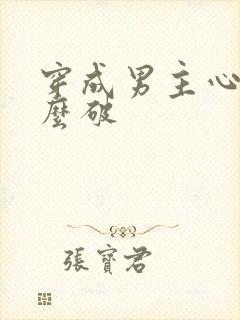 穿成男主心
麼破
張寶君